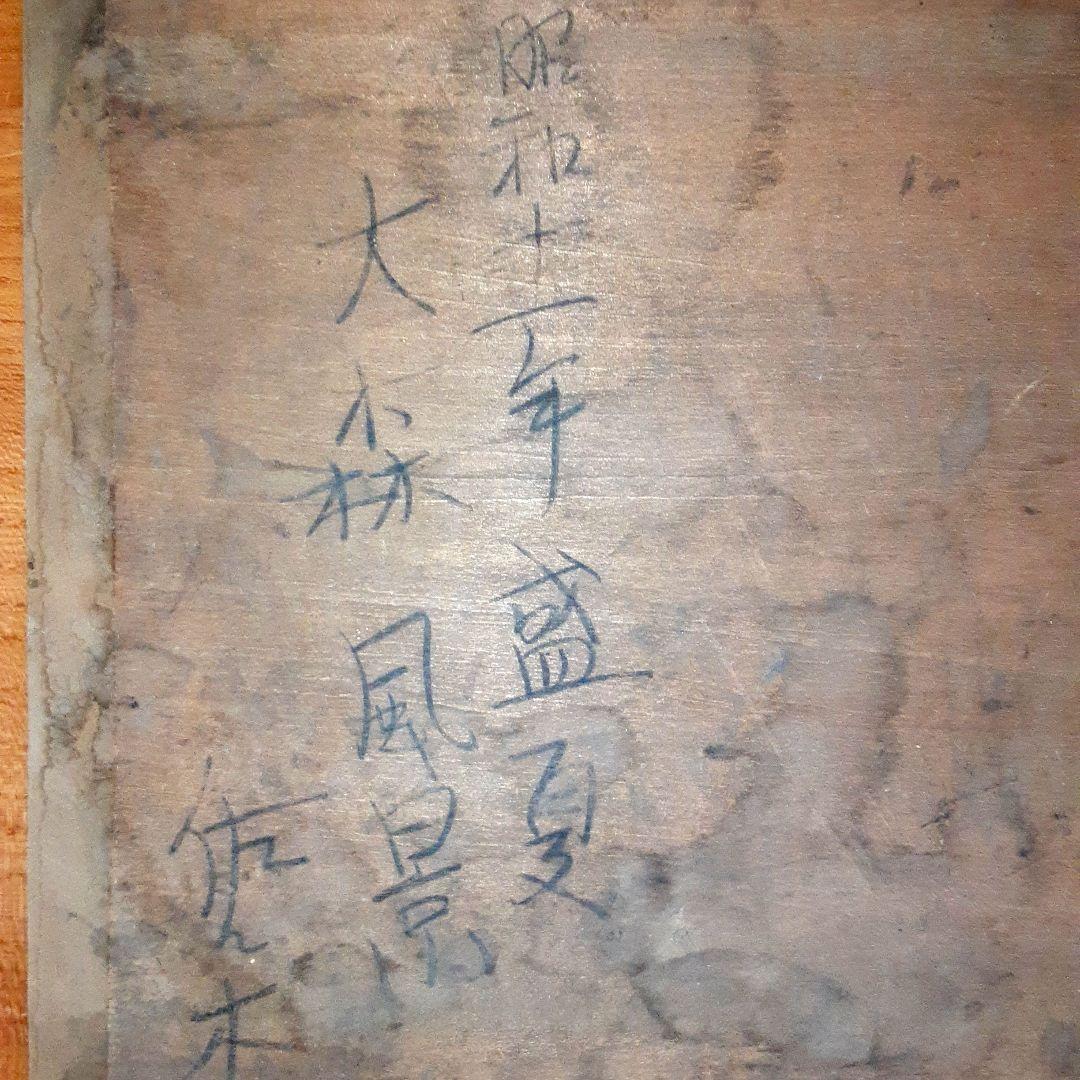 昭和十一年盛夏
大森風景
佐々木